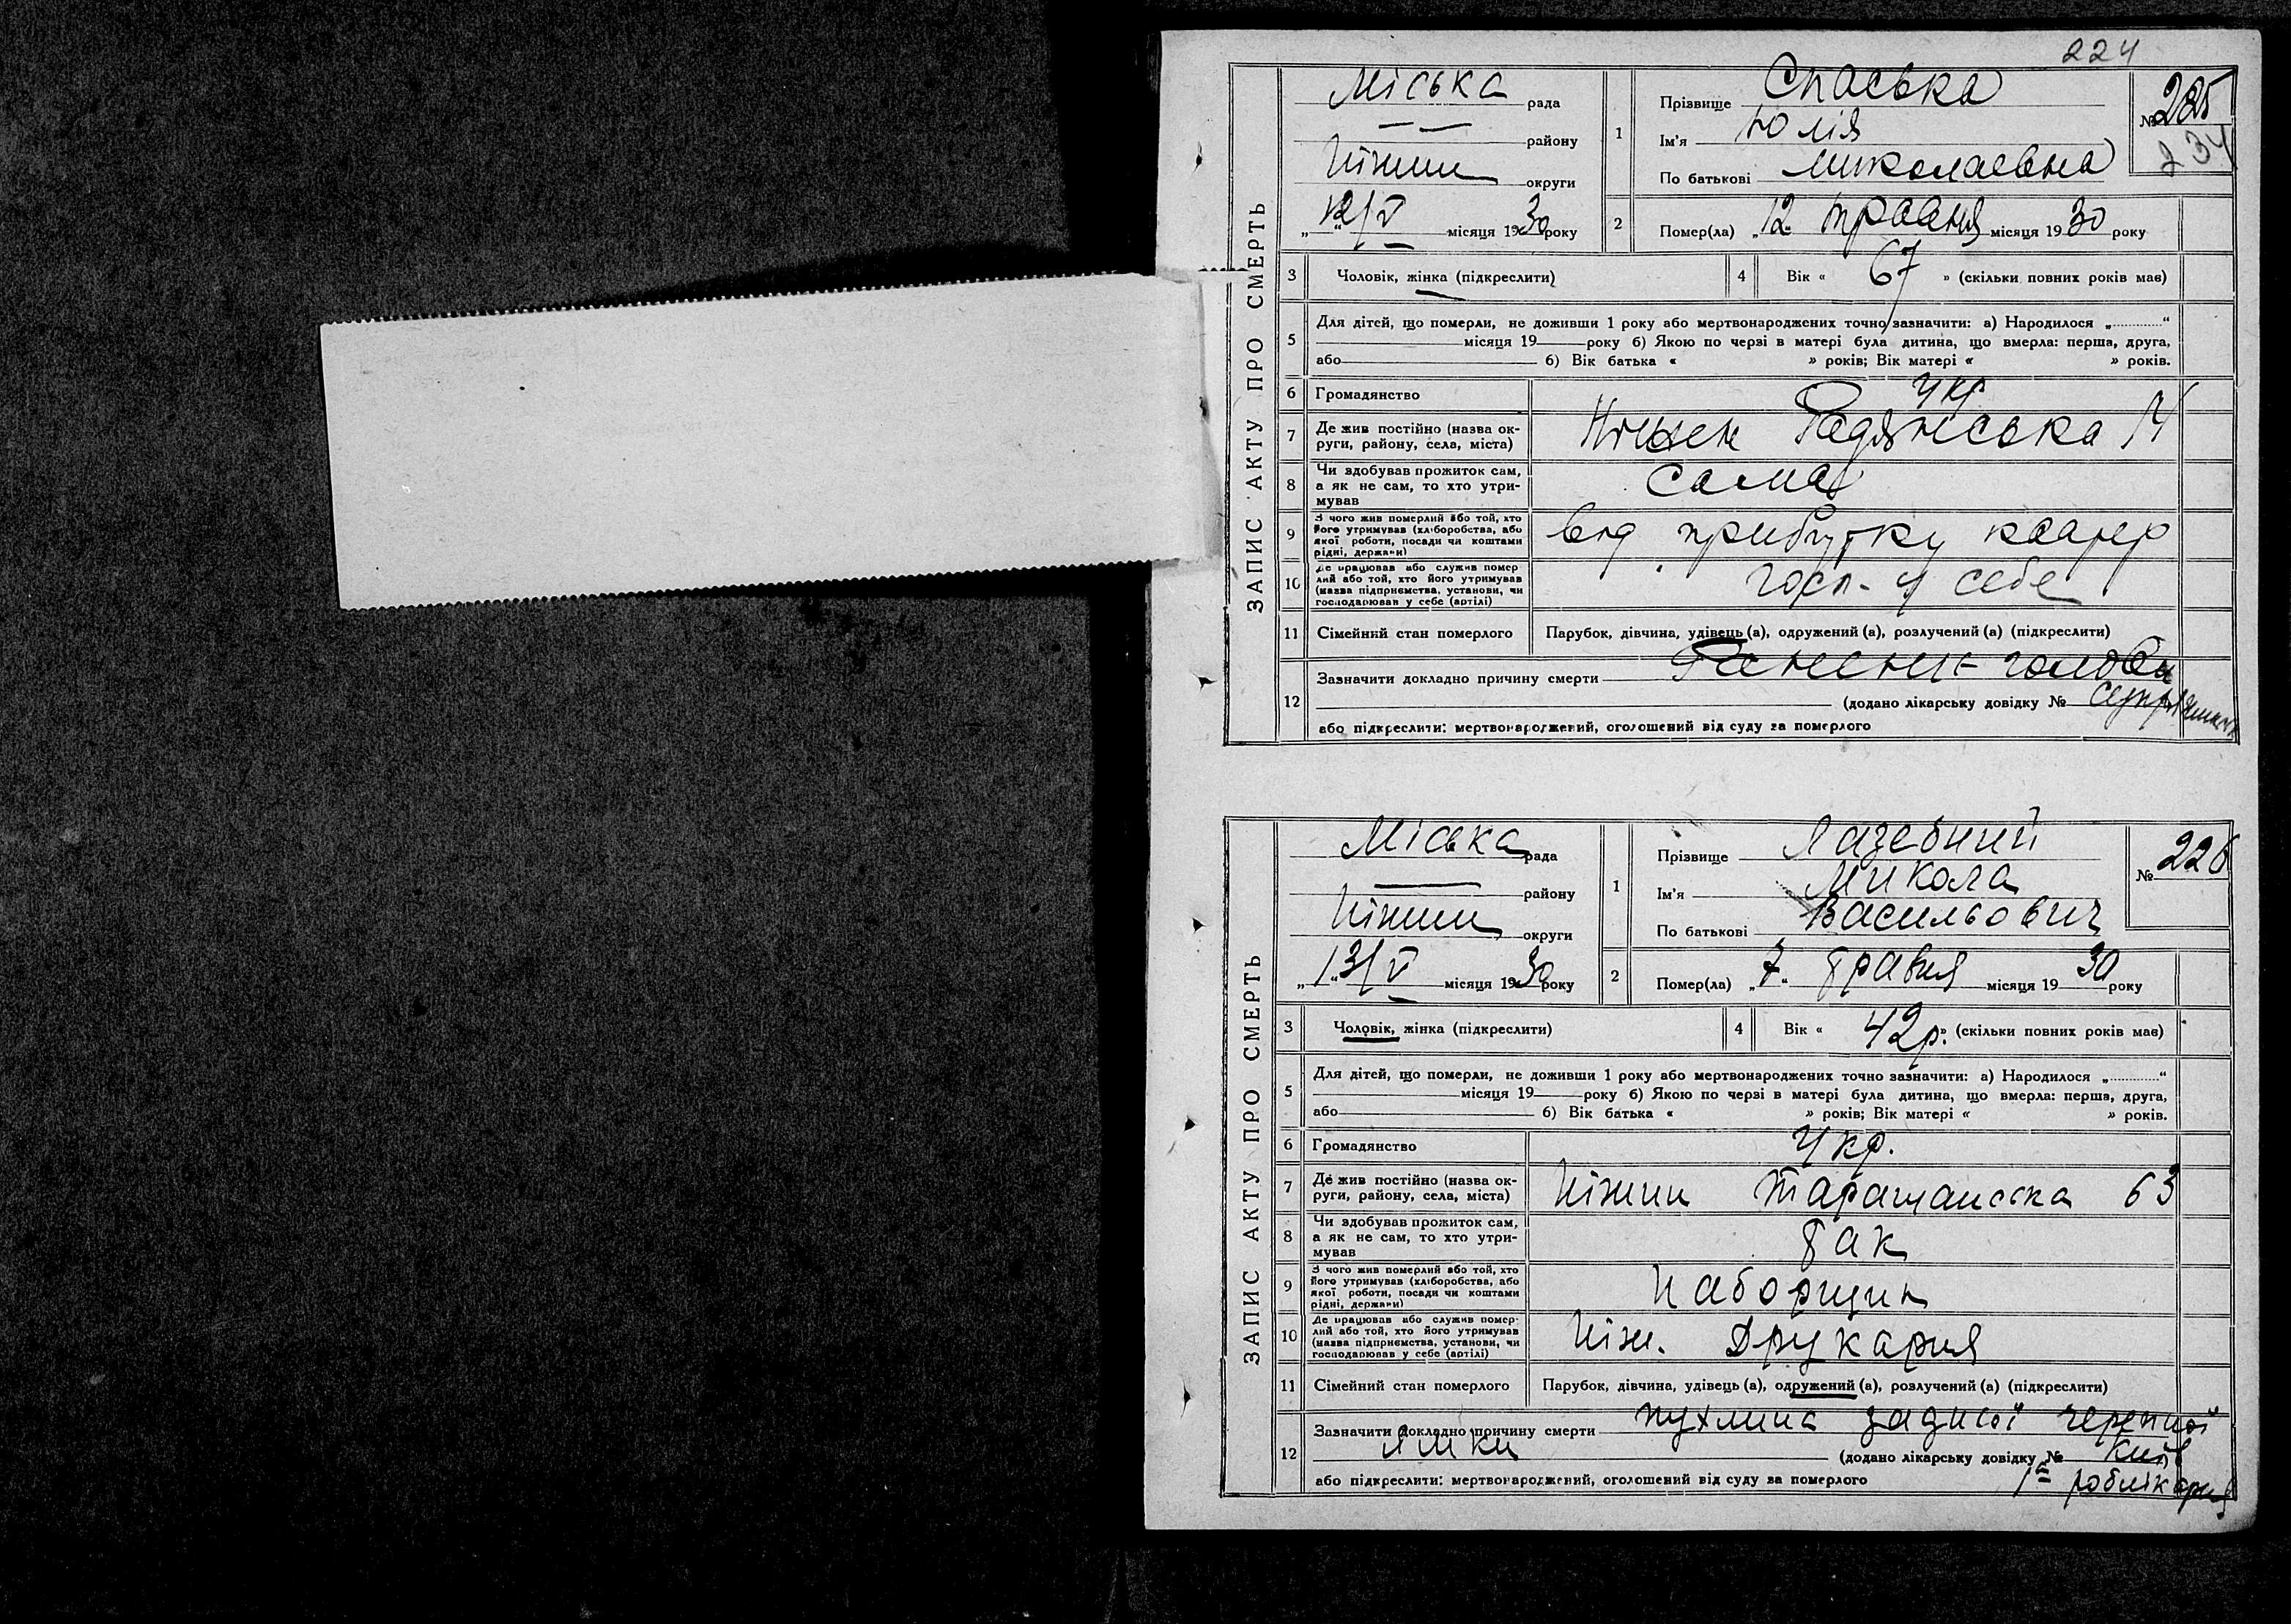 224
ЗАПИС АКТУ ПРО СМЕРТЬ
Міська рада
району
Ніжин округи
"12/V" місяця 1930 року
1 Прізвище Спаська
Ім'я Юлія
По батькові Миколаевна
№ 225
234
2 Помер(ла) „12" травня місяця 1930 року
3 Чоловік, жінка (підкреслити)
4 Вік « 67 » (скільки повних років має)
5 Для дітей, що померли, не доживши 1 року або мертвонароджених точно зазначити: а) Народилося „ "
місяця 19 року б) Якою по черзі в матері була дитина, що вмерла: перша, друга,
або б) Вік батька « » років; Вік матері « » років.
6 Громадянство Укр
7 Де жив постійно (назва округи, району, села, міста) Ніжен Радянська 14
8 Чи здобував прожиток сам, а як не сам, то хто утримував Сама
9 З чого жив померлий або той, хто його утримував (хліборобства, або якої роботи, посади чи коштами рідні, держави) від прибутку кварер
10 Де працював або служив померлий або той, хто його утримував (назва підприємства, установи, чи господарював у себе (артілі) госп- у себе
11 Сімейний стан померлого Парубок, дівчина, удівець (а), одружений (а), розлучений (а) (підкреслити)
12 Зазначити докладно причину смерти голови
(додано лікарську довідку №
або підкреслити: мертвонароджений, оголошений від суду за померлого
ЗАПИС АКТУ ПРО СМЕРТЬ
Міська рада
району
Ніжин округи
"13/V" місяця 1930 року
1 Прізвище Лазебний
Ім'я Микола
По батькові Васильович
№ 226
2 Помер(ла) „7" травня місяця 1930 року
3 Чоловік, жінка (підкреслити)
4 Вік « 42р. » (скільки повних років має)
5 Для дітей, що померли, не доживши 1 року або мертвонароджених точно зазначити: а) Народилося „ "
місяця 19 року б) Якою по черзі в матері була дитина, що вмерла: перша, друга,
або б) Вік батька « » років; Вік матері « » років.
6 Громадянство Укр.
7 Де жив постійно (назва округи, району, села, міста) Ніжин Таращанська 63
8 Чи здобував прожиток сам, а як не сам, то хто утримував так
9 З чого жив померлий або той, хто його утримував (хліборобства, або якої роботи, посади чи коштами рідні, держави) Наборщик
10 Де працював або служив померлий або той, хто його утримував (назва підприємства, установи, чи господарював у себе (артілі) Ніж. Друкарня
11 Сімейний стан померлого Парубок, дівчина, удівець (а), одружений (а), розлучений (а) (підкреслити)
12 Зазначити докладно причину смерти пухлина задньої черепної
ямки
(додано лікарську довідку № Київ
1 роблікарня
або підкреслити: мертвонароджений, оголошений від суду за померлого